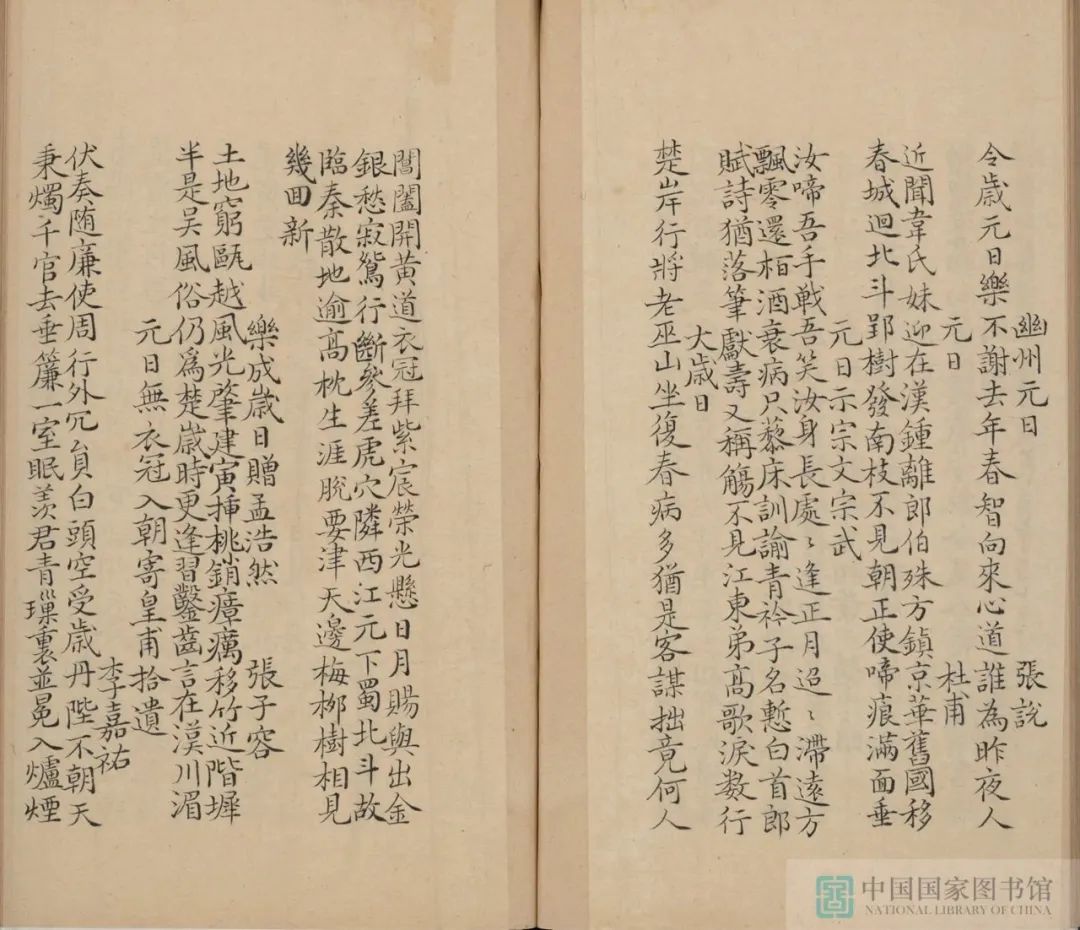 幽州元日 張說
今歲元日樂不謝去年春智向來心道誰為昨夜人
元日 杜甫
近聞韋氏妹迎在漢鍾離郎伯殊方鎮京華舊國移
春城迴北斗郢樹發南枝不見朝正使啼痕滿面垂
元日示宗文宗武
汝啼吾手戰吾笑汝身長處〻逢正月迢〻滯遠方
飄零還栢酒衰病只藜床訓諭青衿子名慙白首郎
賦詩猶落筆獻壽又稱觴不見江東弟高歌淚数行
大歲日
楚岸行將老巫山坐復春病多猶是客謀拙竟何人
閶闔開黃道衣冠拜紫宸榮光懸日月賜與出金
銀愁寂鴛行斷參差虎穴隣西江元下蜀北斗故
臨秦散地逾高枕生涯脫要津天邊梅栁樹相見
幾囬新
樂成歲日贈孟浩然 張子容
土地窮甌越風光肇建寅揷桃銷瘴癘移竹近階墀
半是吴風俗仍爲楚歲時更逢習鑿齒言在漢川湄
元日無衣冠入朝寄皇甫拾遺
李嘉祐
伏奏随廉使周行外冗員白頭空受歲丹陛不朝天
秉燭千官去垂簾一室眠羨君青璅裏並冕入爐煙
中国国家图书馆
NATIONAL LIBRARY OF CHINA